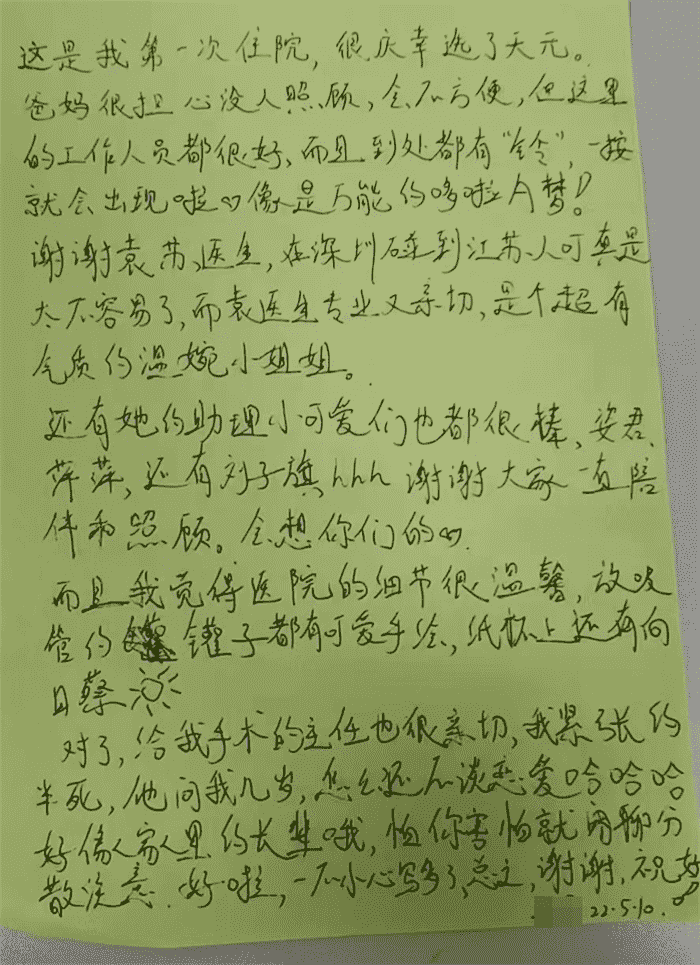 这是我第一次住院，很庆幸选了天元。
爸妈很担心没人照顾，会不方便，但这里
的工作人员都很好、而且到处都有“铃”，一按
就会出现啦♡像是万能的哆啦A梦！
谢谢袁苏医生，在深圳碰到江苏人可真是
太不容易了，而袁医生专业又亲切，是个超有
气质的温婉小姐姐。
还有她的助理小可爱们也都很棒，姿君、
萍萍，还有刘子旗hhh 谢谢大家一直陪
伴和照顾。会想你们的♡.
而且我觉得医院的细节很温馨，放吸
管的罐子都有可爱手绘，纸杯上还有向
日葵
对了，给我手术的主任也很亲切，我紧张的
半死，他问我几岁，怎么还不谈恋爱哈哈哈
好像人家里的长辈哦，怕你害怕就闲聊分
散注意. 好啦，一不小心写多了，总之，谢谢，祝好
22.5.10.